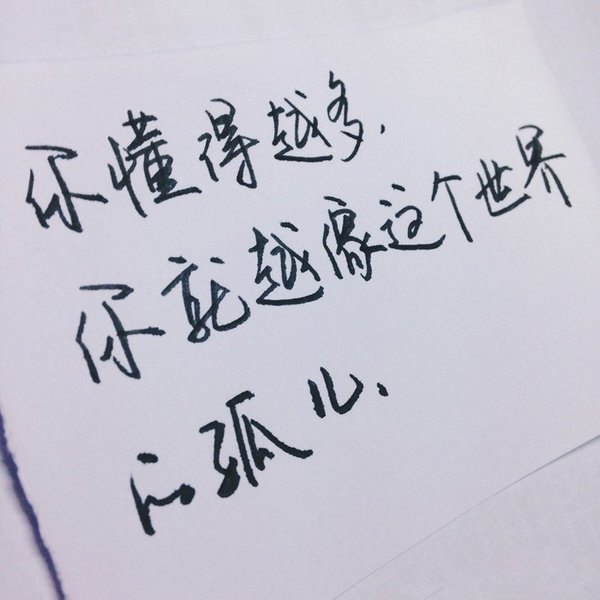 你懂得越多,
你就越像这个世界
的孤儿.